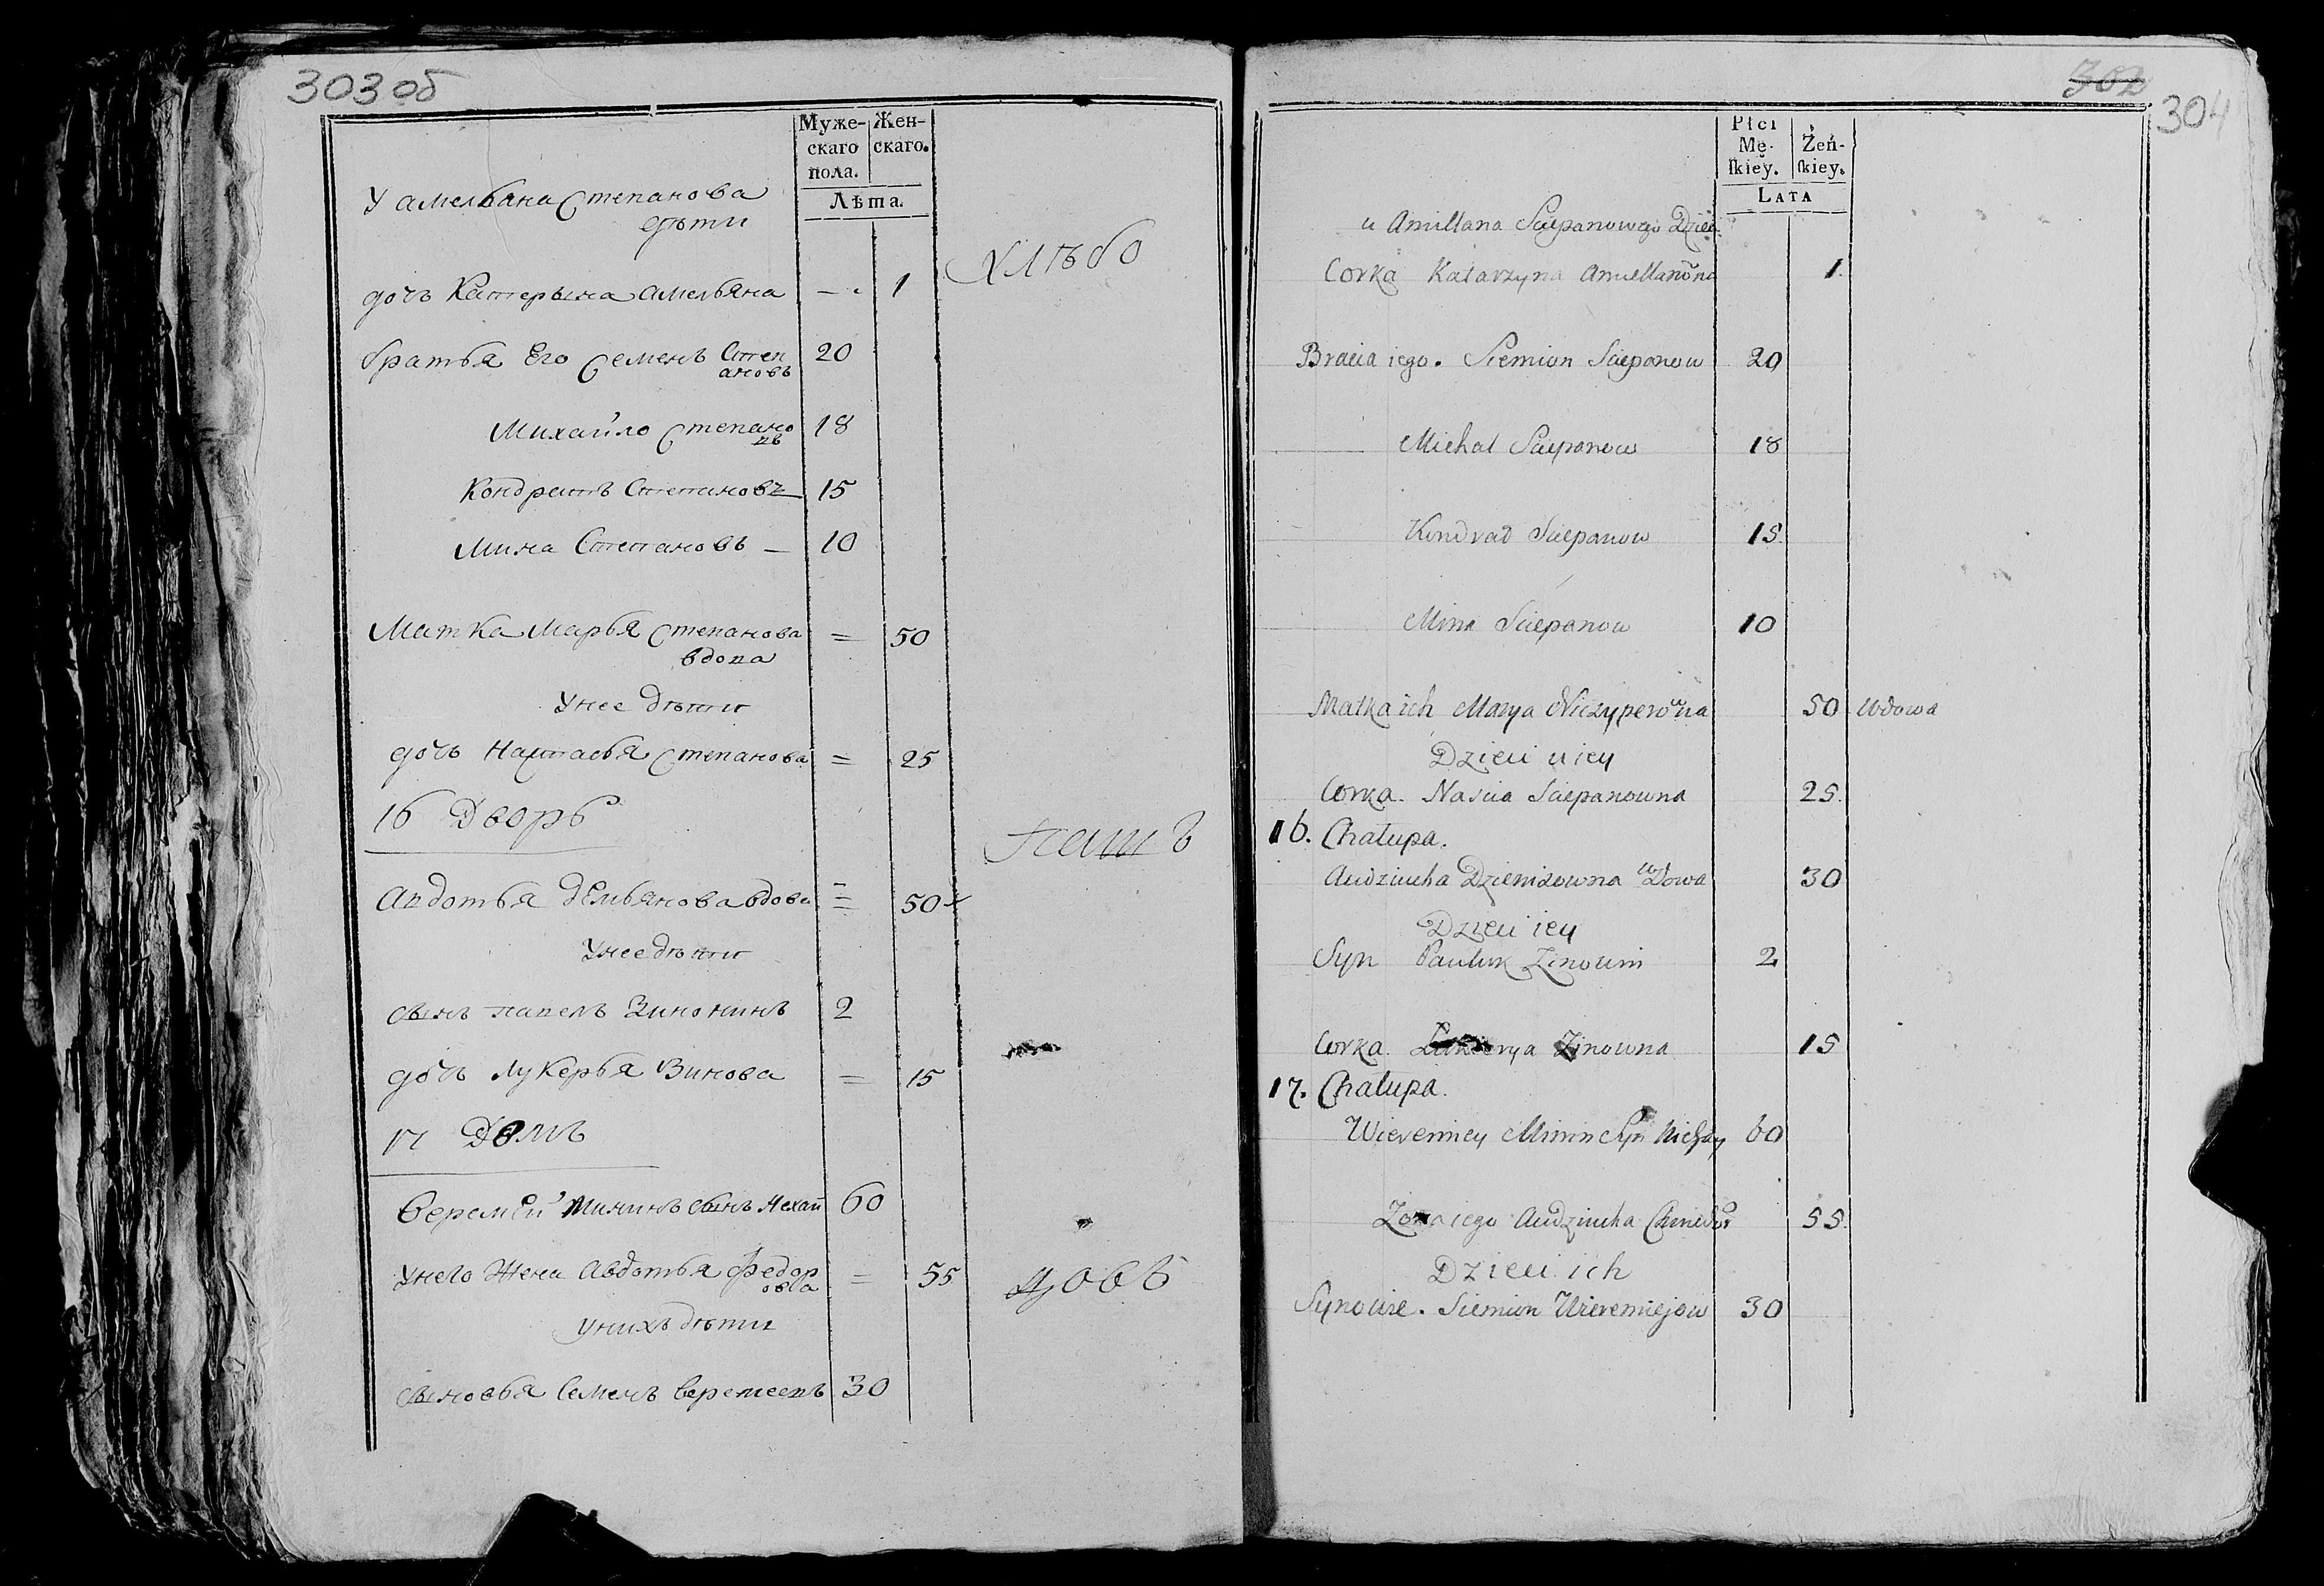 303 об
Муже-
скаго
пола.
Жен-
скаго.
Лѣта.
У амельяна Степанова
дѣти
дочь Катерына амельяна — 1
братья Его Семенъ Степ
ановъ 20
Михайло Степано
въ 18
Кондратъ Степановъ 15
Мина Степановъ — 10
Матка Марья Степанова = 50
вдова
Унее дѣти
дочь Настасья Степанова = 25
16 Дворъ
Авдотья дЕмьянова вдова = 50
Унее дѣти
сынъ павелъ Зиновинъ 2
дочь Лукерья Зинова = 15
17 Домъ
Веремѣй Мининъ сынъ Нехай 60
Унего Жена Авдотья Федор
овa = 55
Унихъ дѣти
сыновья Семенъ Веремеевъ 30
хлѣбо
пашъ
цовъ
302
304
Płci
Mę-
ſkiey.
Żeń-
ſkiey.
LATA
u Amillana Sciepanowego Dzieci
Corka Katarzyna Amiellanowna 1.
Bracia iego. Siemion Sciepanow 20
Michał Sciepanow 18
Kondrad Sciepanow 15.
Mina Sciepanow 10
Matka ich Marya Niczyperowna 50 Wdowa
Dzieci u iey
Corka. Nascia Sciepanowna 25.
16. Chałupa.
Audziucha Dziemidowna wdowa 30
Dzieci iey
Syn Pauluk Zinowin 2
Corka Łukierya Zinowna 15
17. Chałupa.
Wieremiey Minin Syn Niehay 60
Zona iego Audziucha Chwiedor 55.
Dzieci ich
Synowie. Siemion Wieremiejow 30